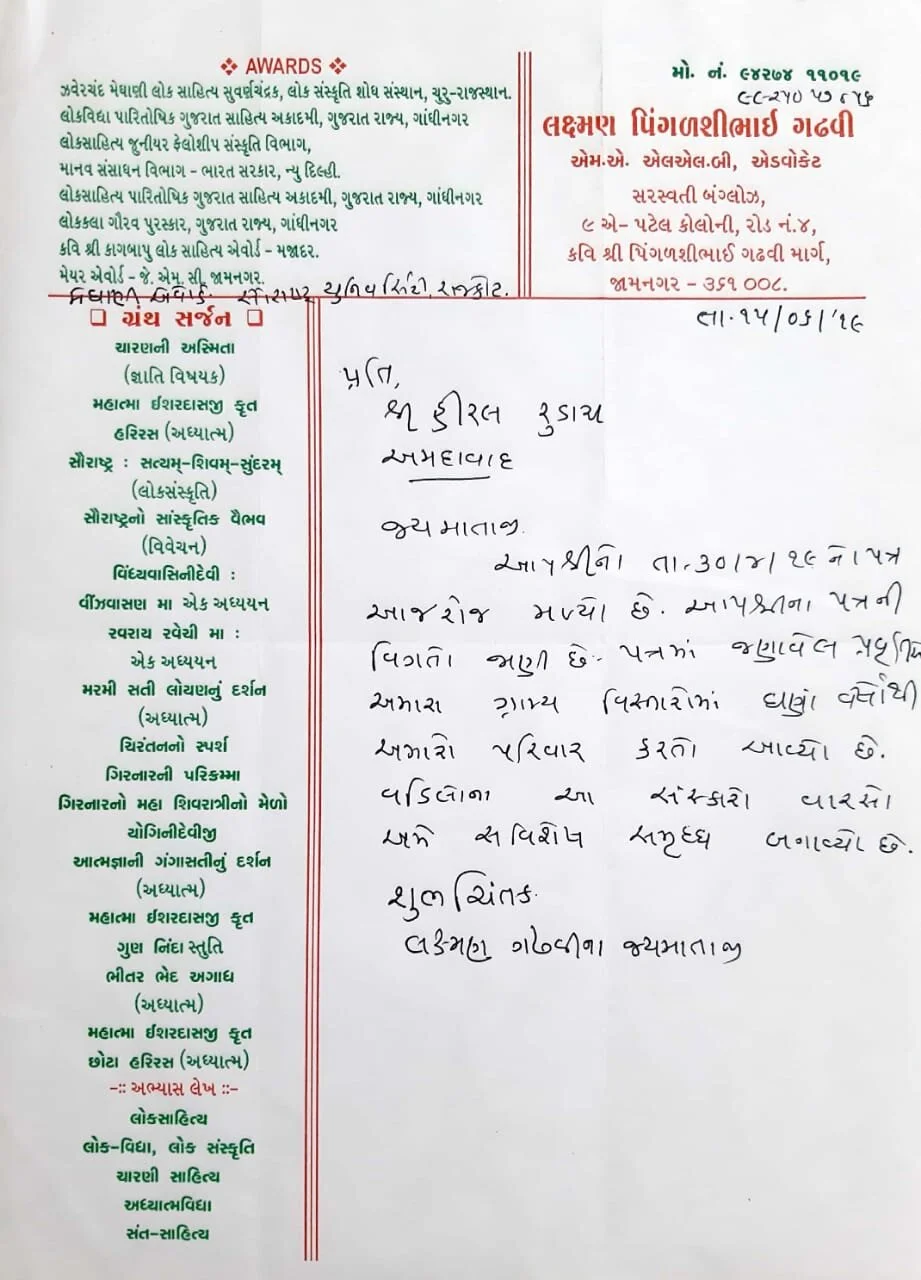 ❖ AWARDS ❖
ઝવેરચંદ મેઘાણી લોક સાહિત્ય સુવર્ણચંદ્રક, લોક સંસ્કૃતિ શોધ સંસ્થાન, ચુરુ-રાજસ્થાન.
લોકવિદ્યા પારિતોષિક ગુજરાત સાહિત્ય અકાદમી, ગુજરાત રાજ્ય, ગાંધીનગર
લોકસાહિત્ય જુનીયર ફેલોશીપ સંસ્કૃતિ વિભાગ,
માનવ સંસાધન વિભાગ - ભારત સરકાર, ન્યુ દિલ્હી.
લોકસાહિત્ય પારિતોષિક ગુજરાત સાહિત્ય અકાદમી, ગુજરાત રાજ્ય, ગાંધીનગર
લોકકલા ગૌરવ પુરસ્કાર, ગુજરાત રાજ્ય, ગાંધીનગર
કવિ શ્રી કાગબાપુ લોક સાહિત્ય એવોર્ડ - મજાદર.
મેયર એવોર્ડ - જે. એમ. સી. જામનગર.
મેઘાણી એવોર્ડ. સૌરાષ્ટ્ર યુનિવર્સિટી, રાજકોટ.
મો. નં. ૯૪૨૭૪ ૧૧૦૧૯
લક્ષ્મણ પિંગળશીભાઈ ગઢવી
એમ.એ. એલએલ.બી, એડવોકેટ
સરસ્વતી બંગ્લોઝ,
૯ એ- પટેલ કોલોની, રોડ નં.૪,
કવિ શ્રી પિંગળશીભાઈ ગઢવી માર્ગ,
જામનગર - ૩૬૧ ૦૦૮.
તા.૧૫/૦૬/'૧૯
❏ ગ્રંથ સર્જન ❏
ચારણની અસ્મિતા
(જ્ઞાતિ વિષયક)
મહાત્મા ઈશરદાસજી કૃત
હરિરસ (અધ્યાત્મ)
સૌરાષ્ટ્ર : સત્યમ્-શિવમ્-સુંદરમ્
(લોકસંસ્કૃતિ)
સૌરાષ્ટ્રનો સાંસ્કૃતિક વૈભવ
(વિવેચન)
વિંધ્યવાસિનીદેવી :
વીંઝવાસણ મા એક અધ્યયન
રવરાય રવેચી મા :
એક અધ્યયન
મરમી સતી લોયણનું દર્શન
(અધ્યાત્મ)
ચિરંતનનો સ્પર્શ
ગિરનારની પરિકમ્મા
ગિરનારનો મહા શિવરાત્રીનો મેળો
યોગિનીદેવીજી
આત્મજ્ઞાની ગંગાસતીનું દર્શન
(અધ્યાત્મ)
મહાત્મા ઈશરદાસજી કૃત
ગુણ નિંદા સ્તુતિ
ભીતર ભેદ અગાધ
(અધ્યાત્મ)
મહાત્મા ઈશરદાસજી કૃત
છોટા હરિરસ (અધ્યાત્મ)
-:: અભ્યાસ લેખ ::-
લોકસાહિત્ય
લોક-વિદ્યા, લોક સંસ્કૃતિ
ચારણી સાહિત્ય
અધ્યાત્મવિદ્યા
સંત-સાહિત્ય
પ્રતિ,
શ્રી હીરલ રુડાચ
અમદાવાદ
જય માતાજી.
આપશ્રીનો તા.૩૦/૪/૧૯ નો પત્ર
આજ રોજ મળ્યો છે. આપશ્રીના પત્રની
વિગતો જાણી છે. પત્રમાં જણાવેલ
અમારા ગ્રામ્ય વિસ્તારોમાં ઘણાં વર્ષોથી
અમારો પરિવાર કરતો આવ્યો છે.
વડિલોના આ સંસ્કારો વારસો
અમે સવિશેષ સમૃધ્ધ બનાવ્યો છે.
શુભ ચિંતક.
લક્ષ્મણ ગઢવીના જયમાતાજી